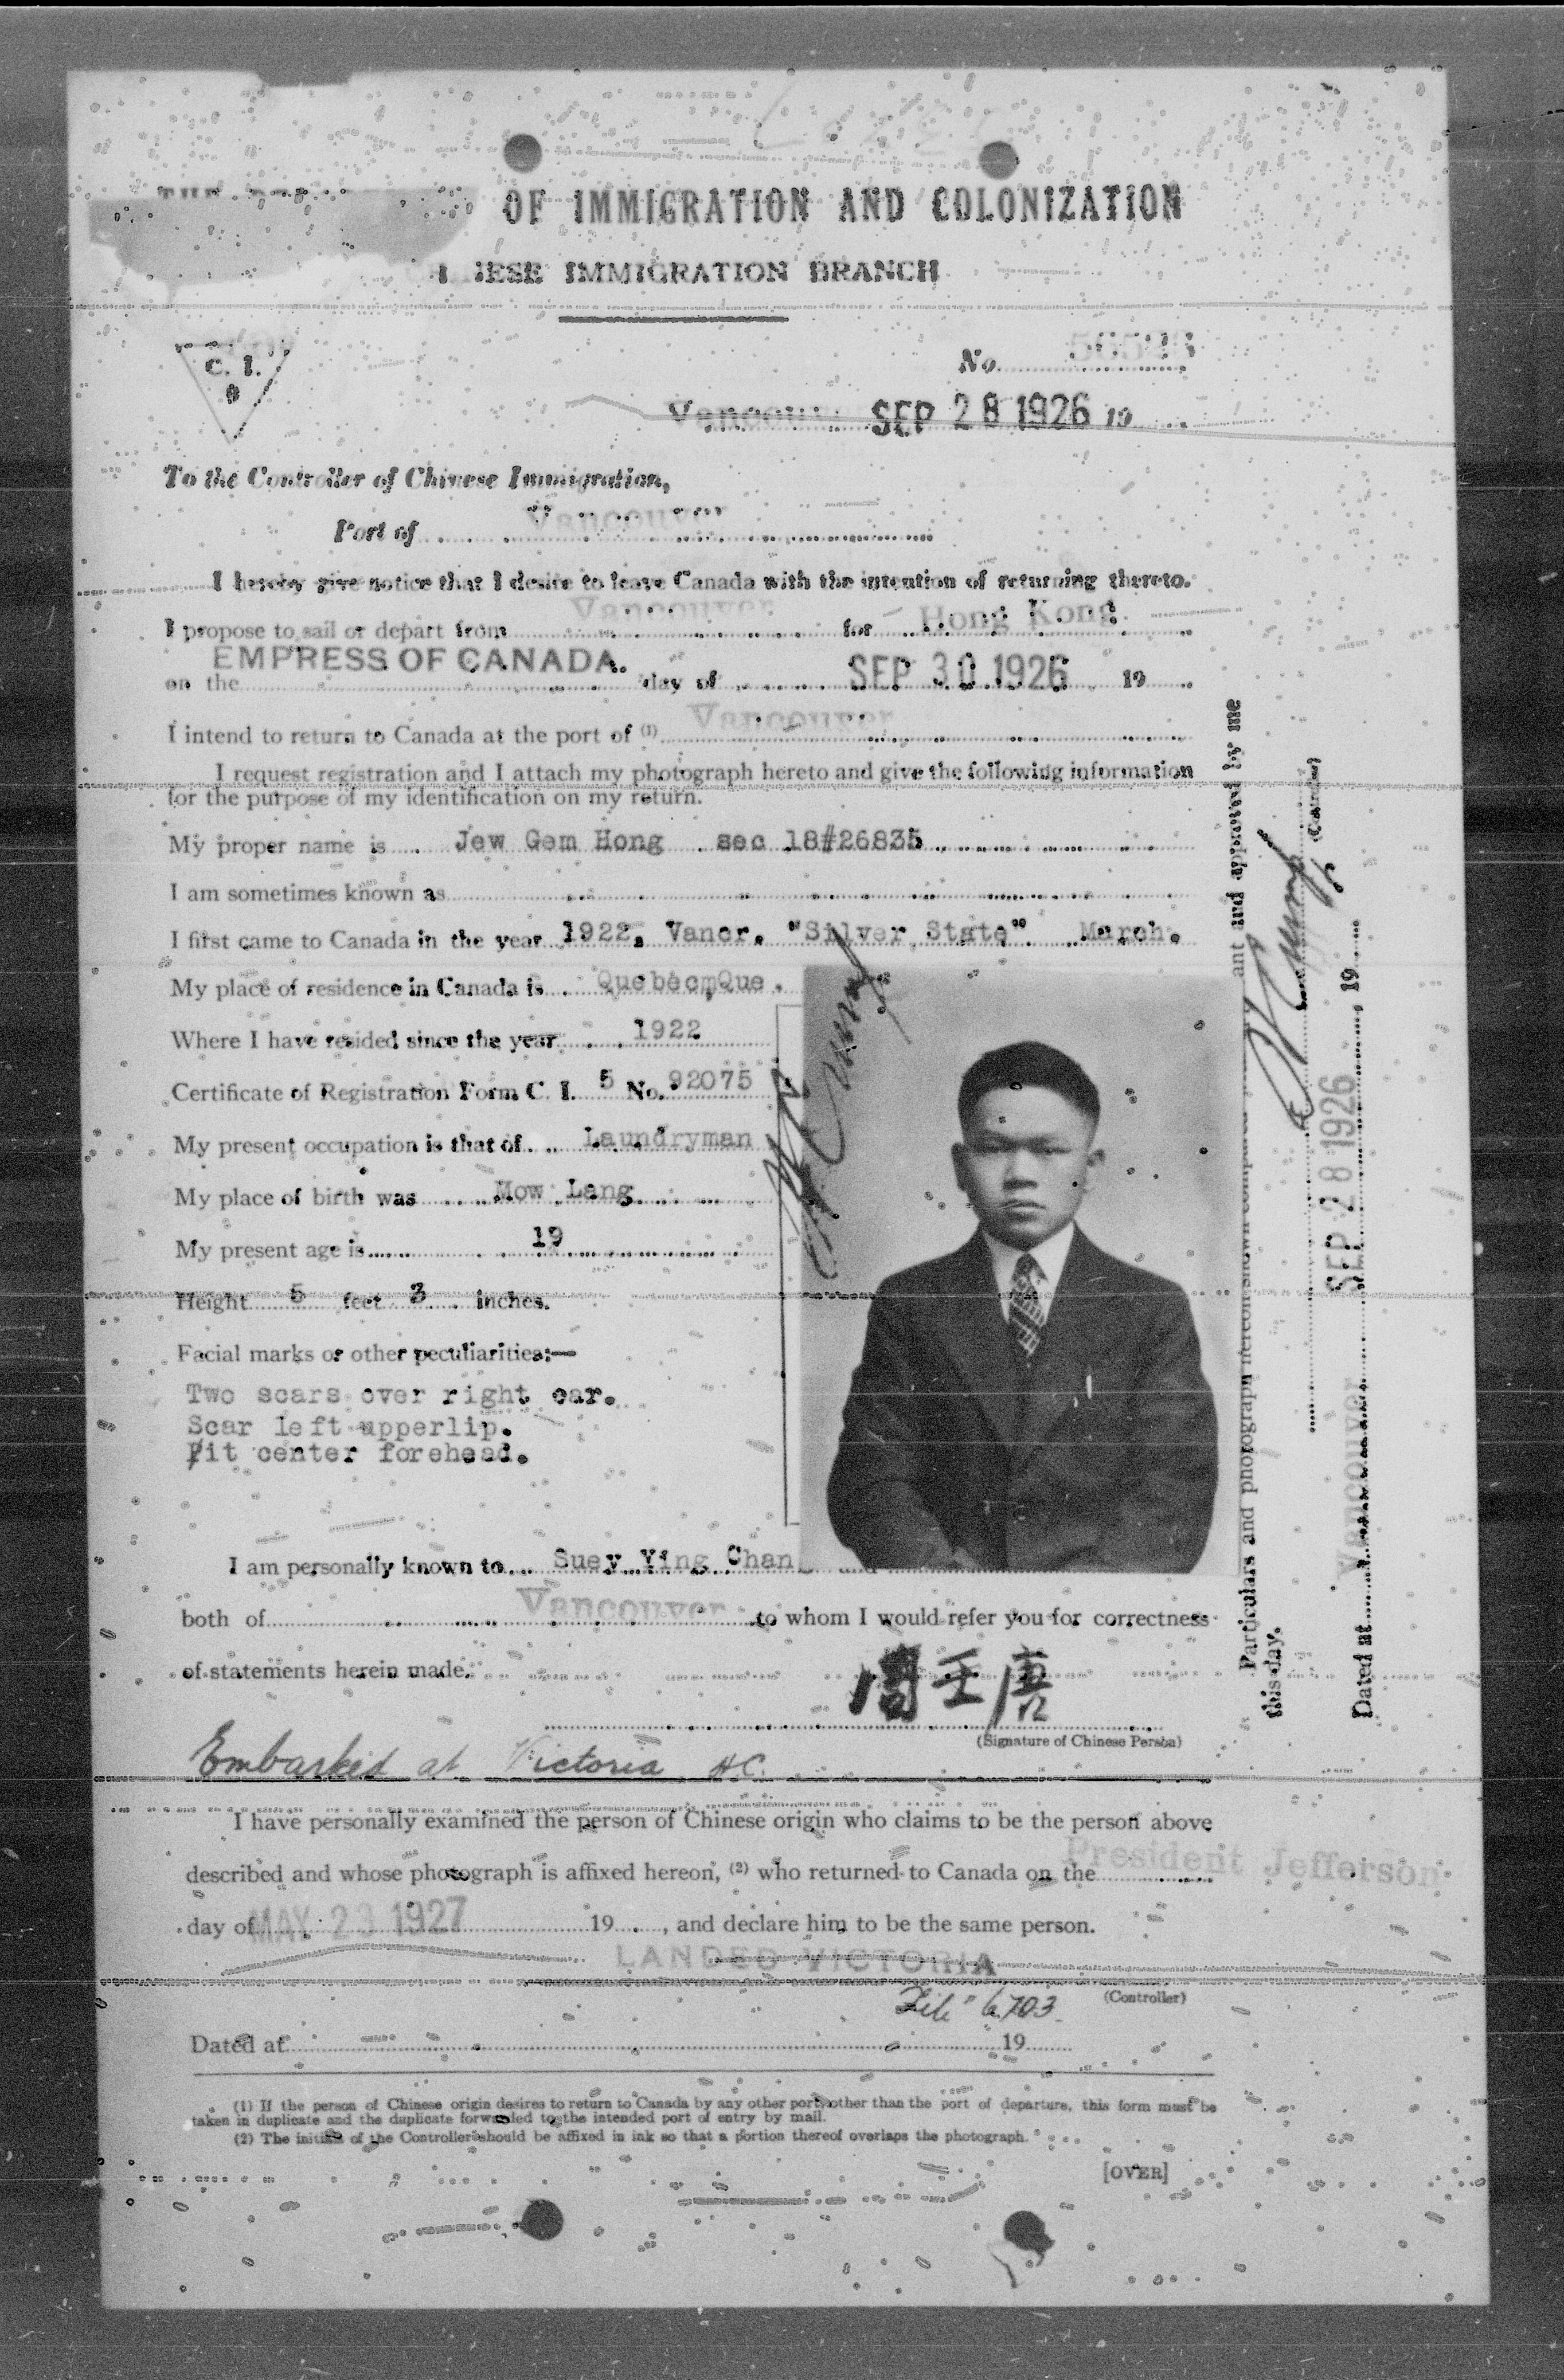 THE OF IMMIGRATION AND COLONIZATION
IESE IMMIGRATION BRANCH
C. I.
9
No. 56526
Vancouver SEP 28 1926 19
To the Controller of Chinese Immigration,
Port of Vancouver
I hereby give notice that I desire to leave Canada with the intention of returning thereto.
I propose to sail or depart from Vancouver for Hong Kong.
EMPRESS OF CANADA.
on the day of SEP 30 1926 19
I intend to return to Canada at the port of (1) Vancouver
I request registration and I attach my photograph hereto and give the following information
for the purpose of my identification on my return.
My proper name is Jew Gem Hong sec 18#26835
I am sometimes known as
I first came to Canada in the year 1922, Vancr. "Silver State" March.
My place of residence in Canada is QuebecmQue.
Where I have resided since the year 1922
Certificate of Registration Form C. I. 5 No. 92075
My present occupation is that of Laundryman
My place of birth was Mow Lang
My present age is 19
Height 5 feet 3 inches.
Facial marks or other peculiarities:—
Two scars over right ear.
Scar left upperlip.
Pit center forehead.
I am personally known to Suey Ying Chan and
both of Vancouver to whom I would refer you for correctness
of statements herein made.
(Signature of Chinese Person)
Embarked at Victoria
I have personally examined the person of Chinese origin who claims to be the person above
President Jefferson
described and whose photograph is affixed hereon, (2) who returned to Canada on the
day of MAY 23 1927 19 , and declare him to be the same person.
LANDED VICTORIA
(Controller)
File 6703
Dated at 19
(1) If the person of Chinese origin desires to return to Canada by any other port other than the port of departure, this form must be
taken in duplicate and the duplicate forwarded to the intended port of entry by mail.
(2) The initials of the Controller should be affixed in ink so that a portion thereof overlaps the photograph.
[OVER]
Particulars and photograph hereon shown compared ant and approved by me
this day.
Dated at Vancouver SEP 28 1926 , 19